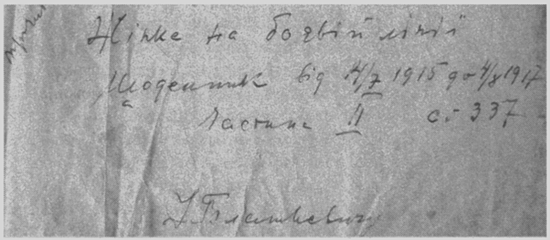 Жінка на боєвій лінії
Щоденник від 14/7 1915 до 4/8 1917
Частина II ст 337